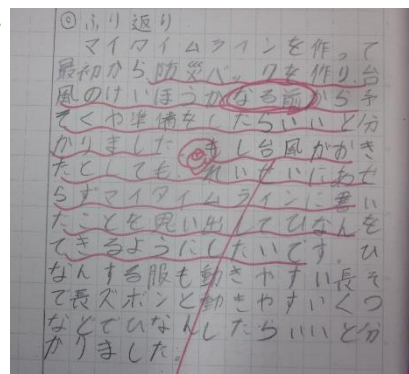 ◎ふり返り
マイタイムラインを作って
最初から防災バックを作り、台
風のけいほうがなる前から予
そくや準備をしたらいいと分
かりました。もし台風がおき
たとしても、れいせいにあせ
らずマイタイムラインに書い
たことを思い出してひなんを
できるようにしたいです。ひ
なんする服も動きやすい長そ
で長ズボンと動きやすいくつ
などでひなんしたらいいと分
かりました。